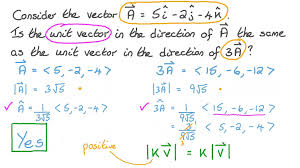 Consider the vector A⃗ = 5î - 2ĵ - 4k̂
Is the unit vector in the direction of A⃗ the same
as the unit vector in the direction of 3A⃗?
A⃗ = < 5, -2, -4 >
3A⃗ = < 15, -6, -12 >
|A⃗| = 3√5
|3A⃗| = 9√5
Â = 1/3√5 < 5, -2, -4 >
3Â = 1/9√5 < 15, -6, -12 >
= 3/9√5 < 5, -2, -4 >
3
Yes
positive
|K V⃗| = K |V⃗|